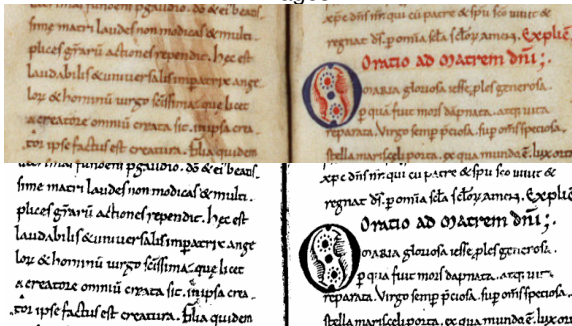 sime matri laudes non modicas & multi
plices gr̃arũ actiones rependit. Hęc est
laudabilis & universalis impatrix ange
lorũ & hominũ uirgo sc̃issima: quę licet
a creatore omniũ creata sit. in ipsa crea
tor ipse factus est creatura. Filia quidem
xp̃c dñs ñr. qui cũ patre & sp̃u sc̃o uiuit &
regnat dš. p omnia sc̃la sc̃lorũ. amen. Explic̃
Oratio ad Matrem dñi;.
O Maria gloriosa iesse, ples generosa.
p quã fuit mors dapnata. atq; uita
reparata. Virgo semp pciosa. sup om̃s speciosa.
stella maris celi porta. ex qua mundo ẽ. lux orta
pgaudio. dõ & ei beatis
sime matri laudes non modicas & multi
plices gr̃arũ actiones rependit. Hęc est
laudabilis & universalis impatrix ange
lorũ & hominũ uirgo sc̃issima: quę licet
a creatore omniũ creata sit. in ipsa crea
tor ipse factus est creatura. Filia quidem
xp̃c dñs ñr. qui cũ patre & sp̃u sc̃o uiuit &
regnat dš. p omnia sc̃la sc̃lorũ. amen. Explic̃
Oratio ad Matrem dñi;.
O Maria gloriosa iesse, ples generosa.
p quã fuit mors dapnata. atq; uita
reparata. Virgo semp pciosa. sup om̃s speciosa.
stella maris celi porta. ex qua mundo ẽ. lux orta